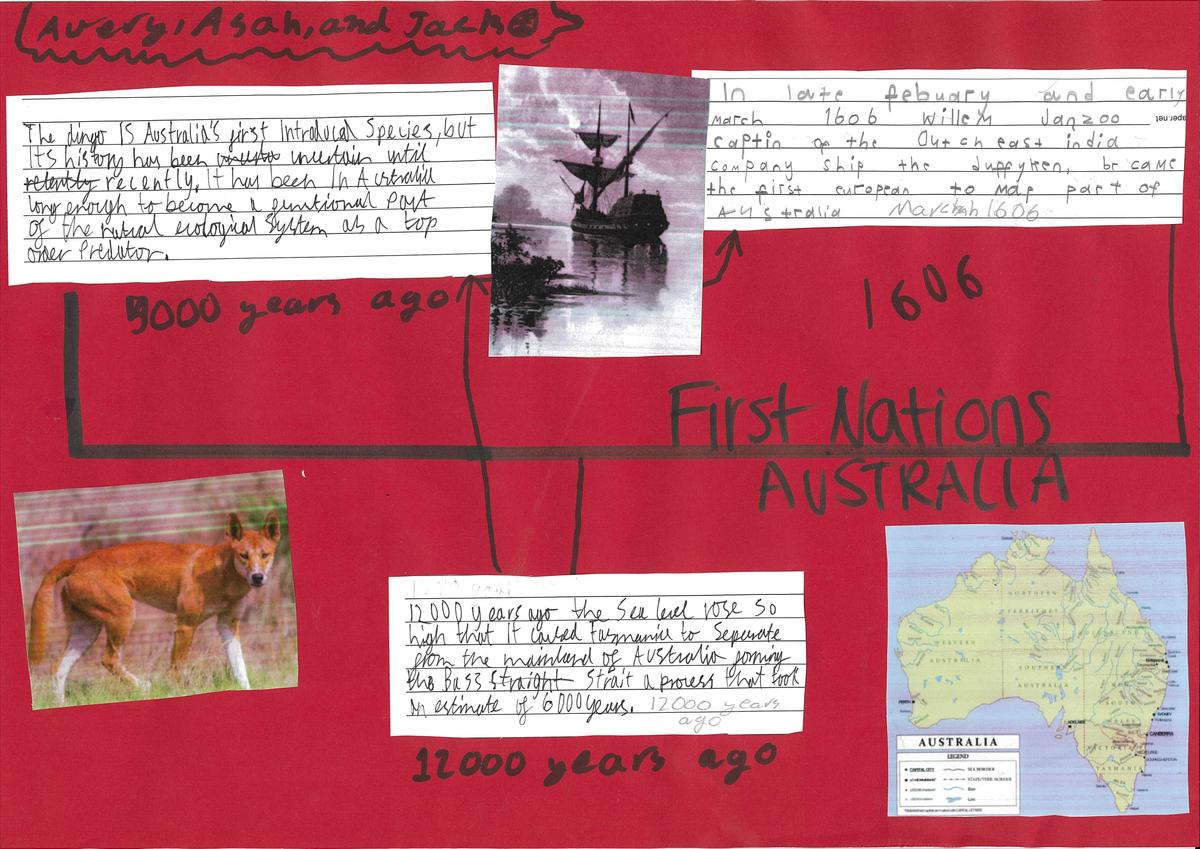 (Avery, Asah, and Jack)
The dingo IS Australia's first Introducal Species, but
Its history has been uncertain until
recently, It has been In Australia
long enough to become a funtional Part
of the natural ecological System as a top
order Predator.
In late febuary and early
March 1606 Willem Janzoo
captin of the Dutch east india
company ship the duffyken, be came
the first european to map part of
Australia March 1606
aper.net
5000 years ago
1606
First Nations
AUSTRALIA
12000 years ago the Sea level rose so
high that It caused Tasmania to Seperate
from the mainland of Australia forming
the Bass straight Strait a process that took
an estimate of 6000 years. 12000 years
ago
12000 years ago
NORTHERN
TERRITORY
WESTERN
AUSTRALIA
QUEENSLAND
SOUTHERN
AUSTRALIA
SOUTH
WALES
VICTORIA
TASMANIA
PERTH
ADELAIDE
SYDNEY
CANBERRA
AUSTRALIA
LEGEND
CAPITAL CITY
STATE/TERR. BORDER